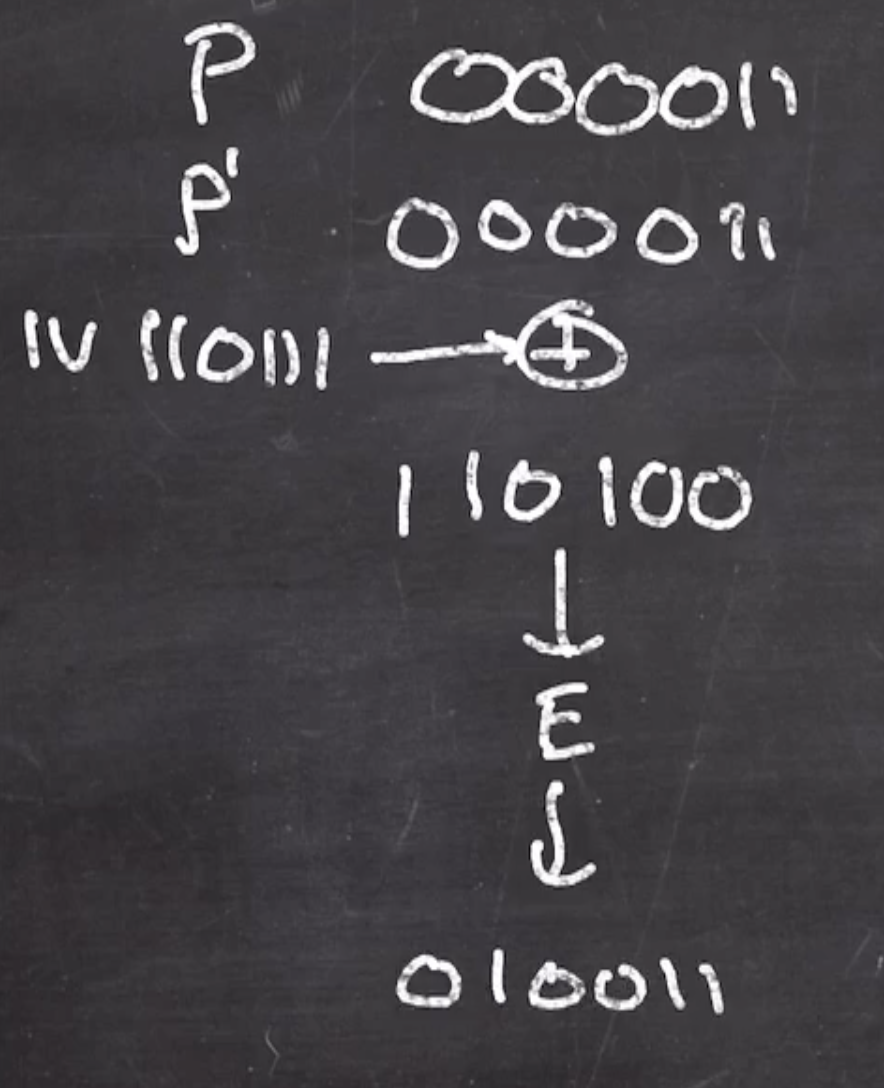 P 000011
P' 000011
IV 110111 → ⊕
110100
↓
E
↓
010011